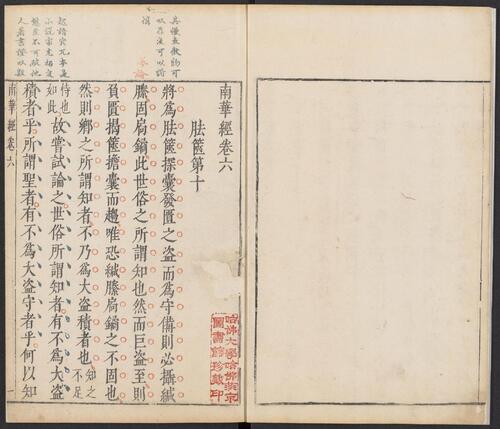 南華經卷六
胠篋第十
將為胠篋探囊發匱之盜而為守備則必攝緘
縢固扃鐍此世俗之所謂知也然而巨盜至則
負匱揭篋擔囊而趨唯恐緘縢扃鐍之不固也
然則鄉之所謂知者不乃為大盜積者也知之不足
恃也如此故嘗試論之世俗所謂知者有不為大盜
積者乎所謂聖者有不為大盜守者乎何以知
南華經卷六
一
哈佛大學哈佛燕京
圖書館珍藏印